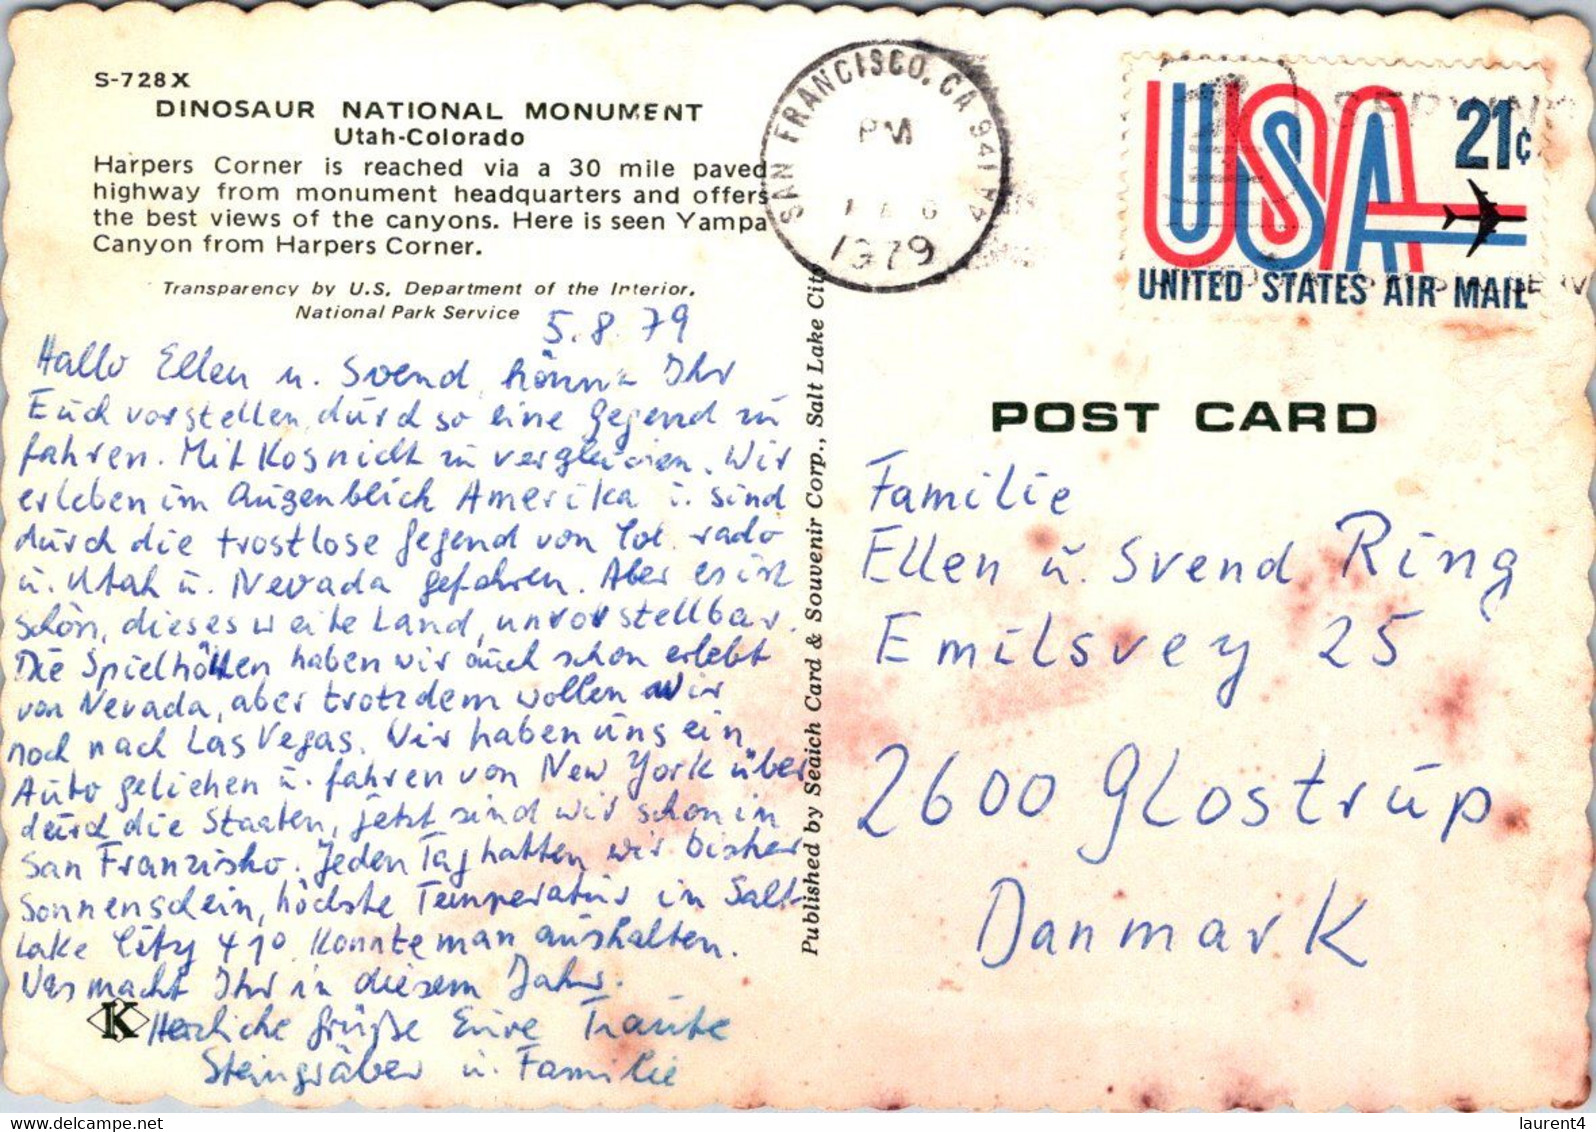 S-728X
DINOSAUR NATIONAL MONUMENT
Utah-Colorado
Harpers Corner is reached via a 30 mile paved
highway from monument headquarters and offers
the best views of the canyons. Here is seen Yampa
Canyon from Harpers Corner.
Transparency by U.S. Department of the Interior,
National Park Service
5.8.79
Hallo Ellen u. Svend, könnt Ihr
Euch vorstellen, durch so eine Gegend zu
fahren. Mit Kos nicht zu vergleichen. Wir
erleben im Augenblick Amerika u. sind
durch die trostlose Gegend von Colorado
u. Utah u. Nevada gefahren. Aber es ist
schön, dieses weite Land, unvorstellbar.
Die Spielhöllen haben wir auch schon erlebt
von Nevada, aber trotzdem wollen wir
noch nach Las Vegas. Wir haben uns ein
Auto geliehen u. fahren von New York über
durch die Staaten, jetzt sind wir schon in
San Franzisko. Jeden Tag hatten wir bisher
Sonnenschein, höchste Temperatur in Salt
Lake City 41°. Konnte man aushalten.
Was macht Ihr in diesem Jahr.
Herzliche Grüße Eure Traute
Steingräber u. Familie
K
Published by Seaich Card & Souvenir Corp., Salt Lake City
SAN FRANCISCO, CA 941
PM
6
1979
USA 21¢
UNITED STATES AIR MAIL
POST CARD
Familie
Ellen u. Svend Ring
Emilsvey 25
2600 Glostrup
Danmark
hippostcard.com
laurent4